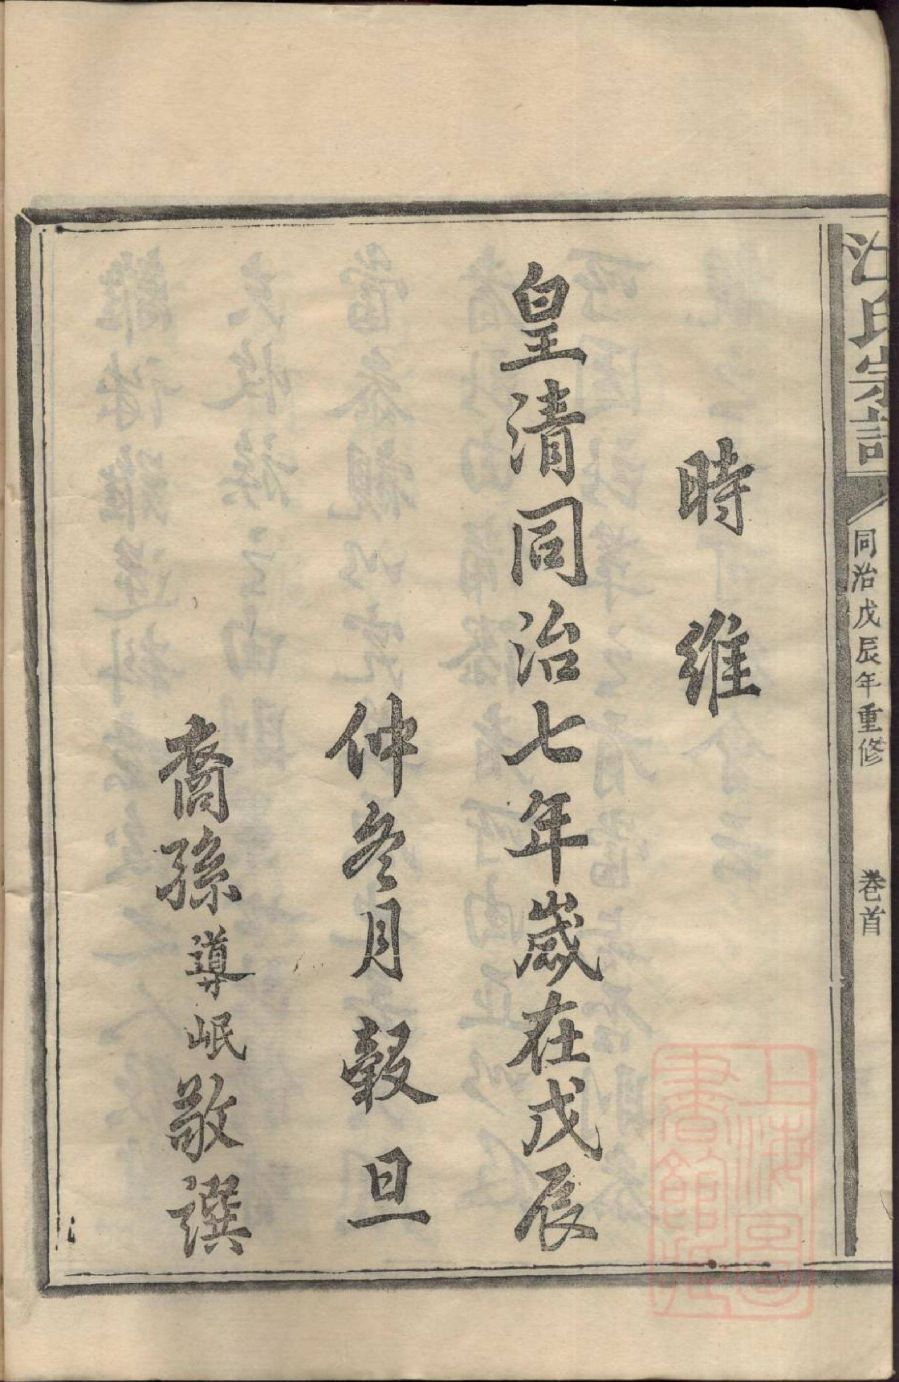 時維
皇清同治七年歲在戊辰
仲冬月穀旦
裔孫導岷敬譔
江氏宗譜
同治戊辰年重修
卷首
上海圖書館藏